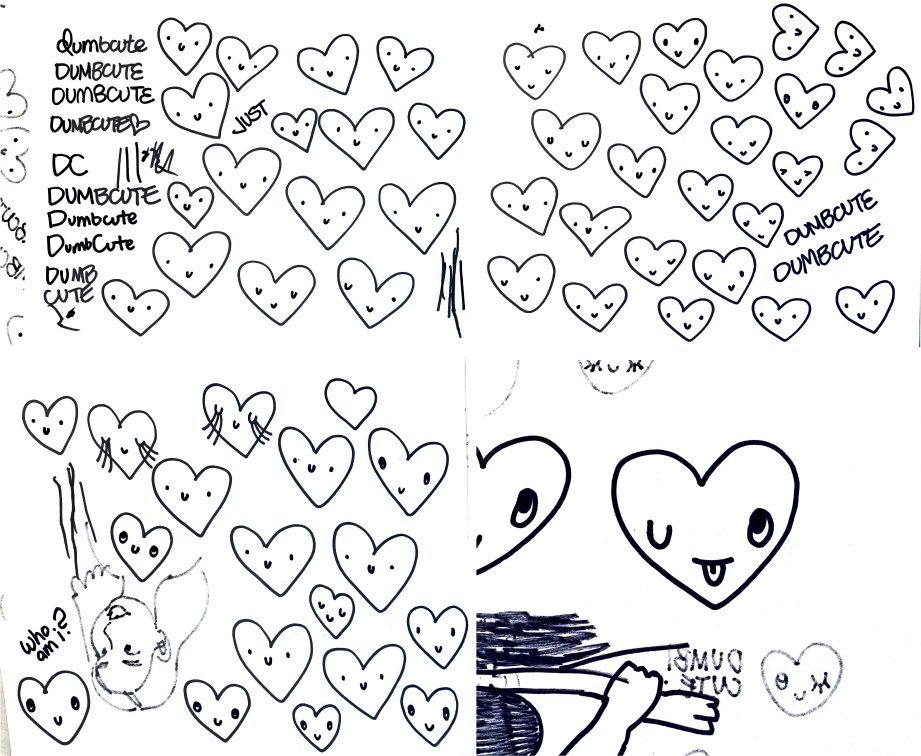 dumbcute
DUMBCUTE
DUMBCUTE
DUMBCUTE
JUST
DC
DUMBCUTE
Dumbcute
DumbCute
DUMB
CUTE
DUMBCUTE
DUMBCUTE
Who
am i?
DUMB
CUTE